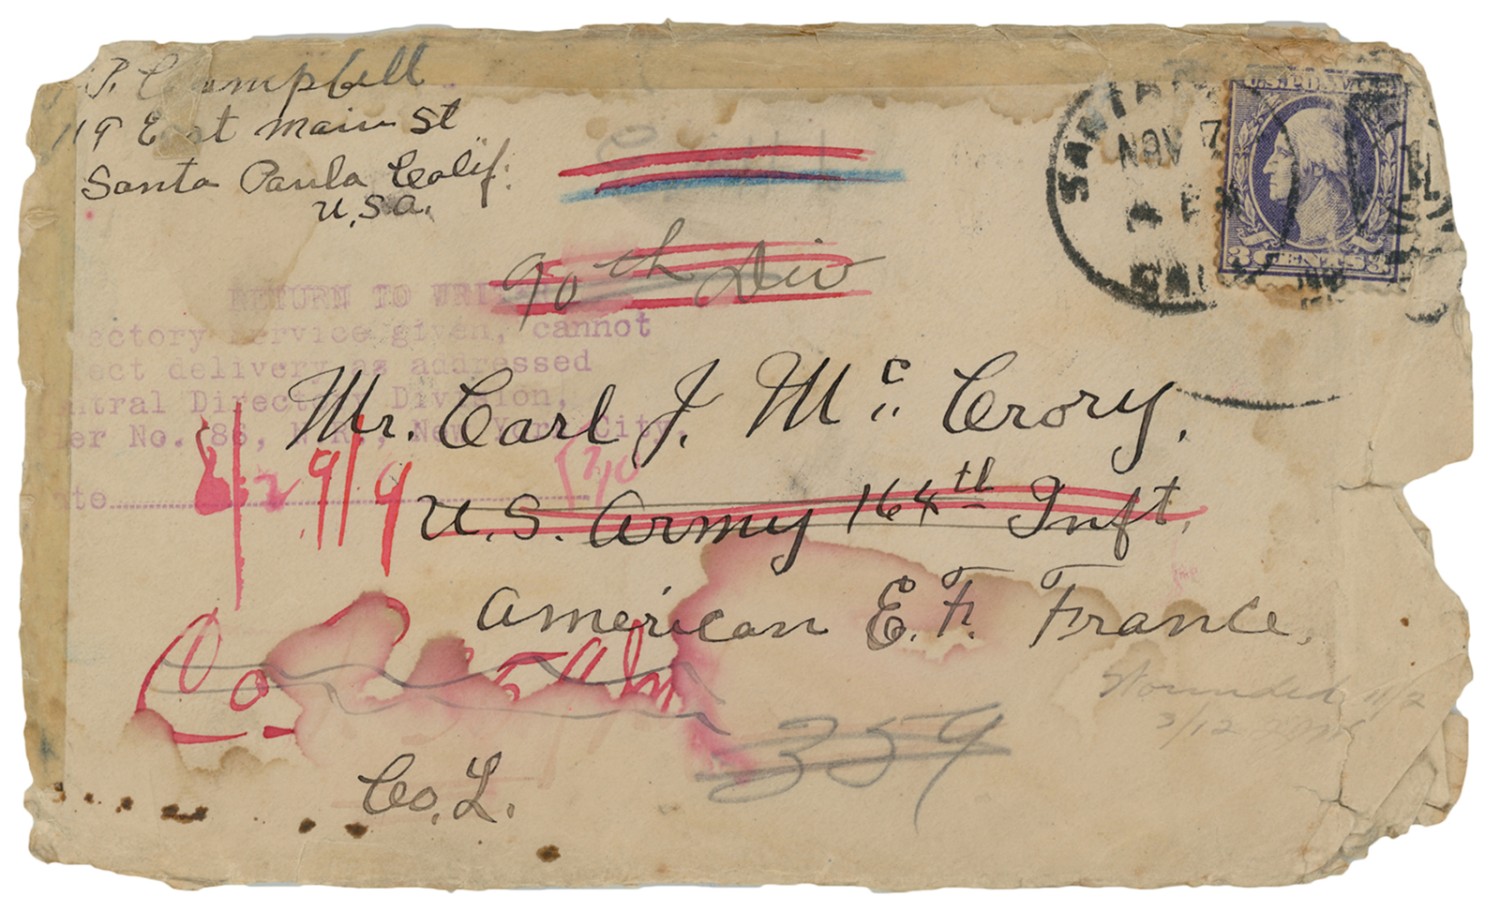 P. Campbell
119 East Main St
Santa Paula Calif.
U.S.A.
NOV 7
CAL
U.S. POSTAGE
3 CENTS 3
90th Div
RETURN TO WRITER
ectory service given, cannot
ect delivery as addressed
ntral Directory Division,
er No. 86, N.R., New York City.
te
4/2 9/9
Mr. Carl J. Mc. Crory.
U.S. Army 164th Inft.
American E. F. France.
Wounded 11/2
3/12
Co
359
Co. L.